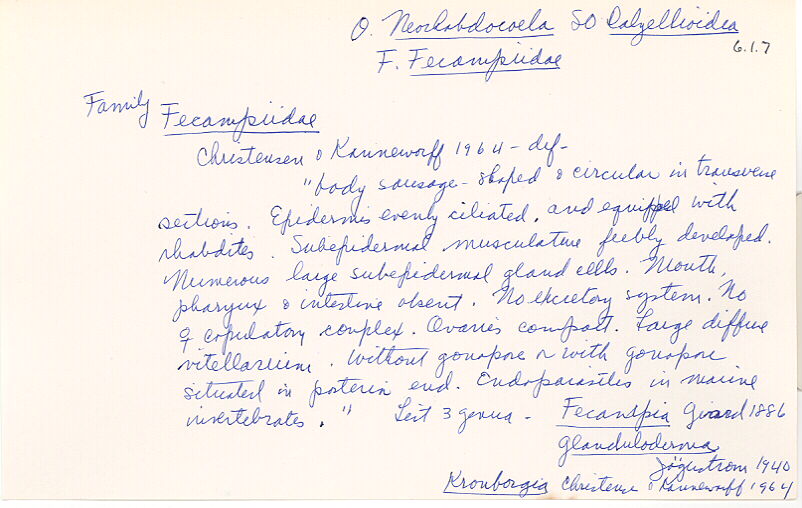 O. Neorhabdocoela SO Dalyellioidea
6.1.7
F. Fecampiidae
Family Fecampiidae
Christensen & Kanneworff 1964 - def-
"body sausage-shaped & circular in transverse
sections. Epidermis evenly ciliated, and equipped with
rhabdites. Subepidermal musculature feebly developed.
Numerous large subepidermal gland cells. Mouth,
pharynx & intestine absent. No excretory system. No
♀ copulatory complex. Ovaries compact. Large diffuse
vitellarium. Without gonopore or with gonopore
situated in posterior end. Endoparasites in marine
invertebrates." List 3 genera - Fecampia Giard 1886
Glanduloderma
Jägerstrom 1940
Kronborgia Christensen & Kannewo​rff 1964